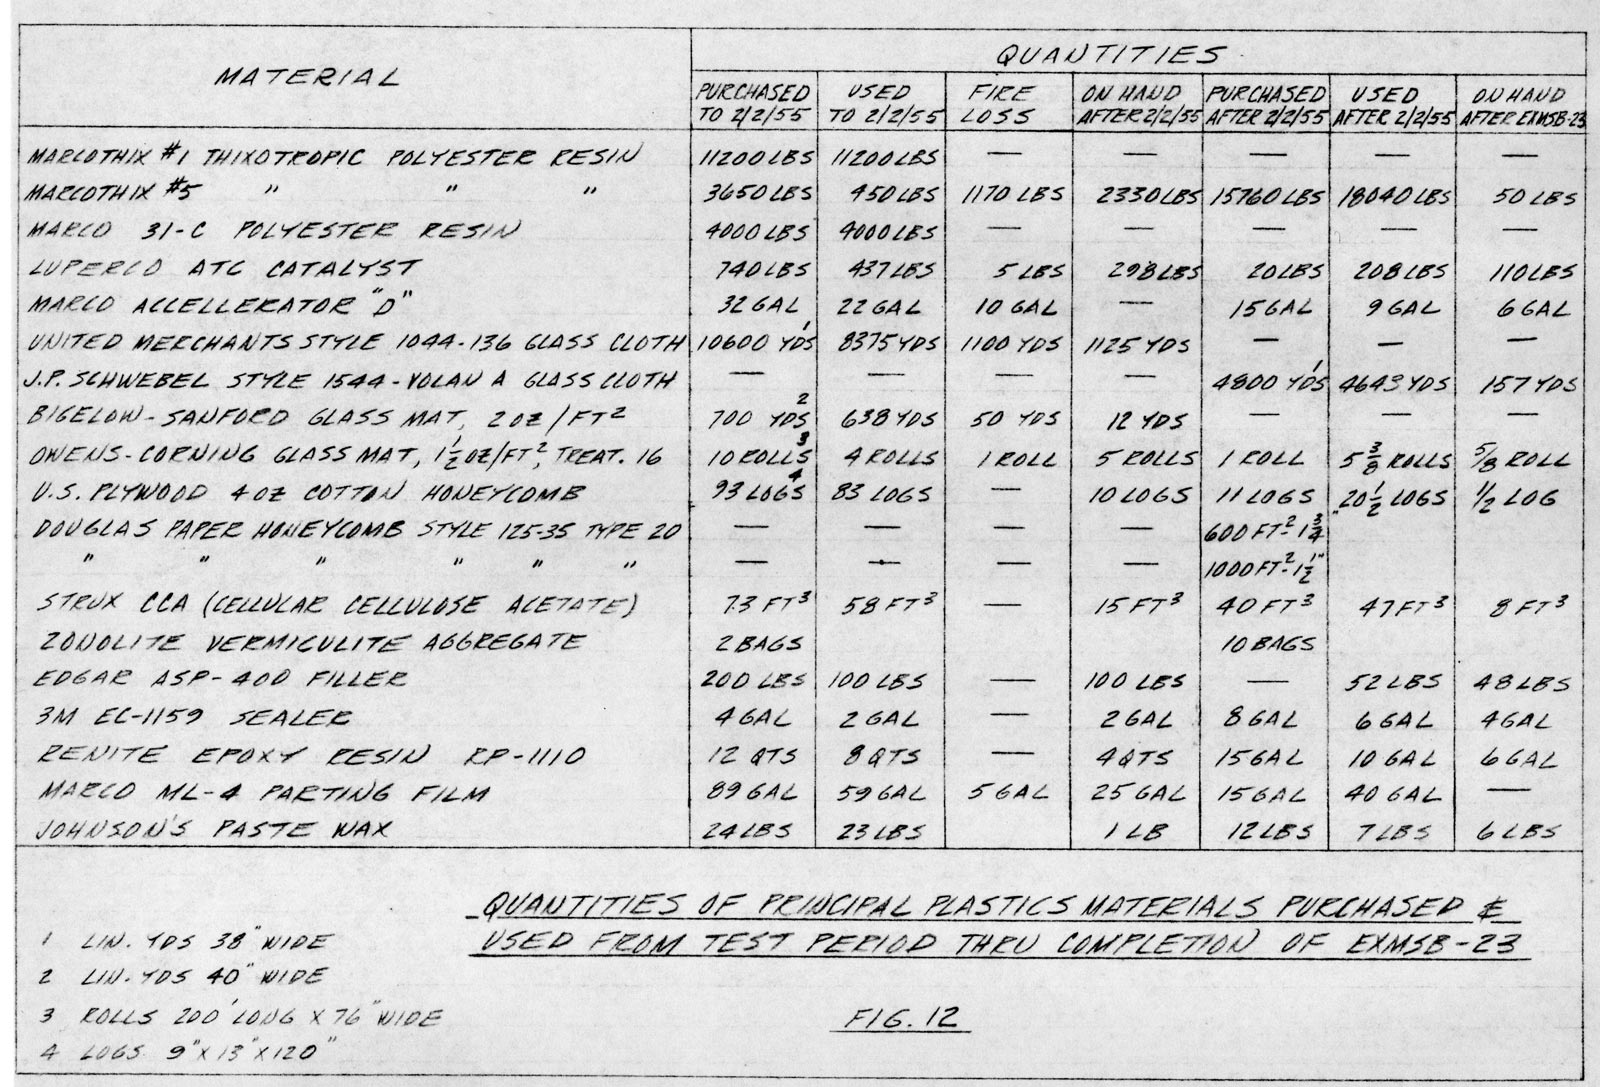 MATERIAL
QUANTITIES
PURCHASED TO 2/2/55 USED TO 2/2/55 FIRE LOSS ON HAND AFTER 2/2/55 PURCHASED AFTER 2/2/55 USED AFTER 2/2/55 ON HAND AFTER EXMSB-23
MARCOTHIX #1 THIXOTROPIC POLYESTER RESIN 11200 LBS 11200 LBS — — — — —
MARCOTHIX #5 " " " 3650 LBS 450 LBS 1170 LBS 2330 LBS 15760 LBS 18040 LBS 50 LBS
MARCO 31-C POLYESTER RESIN 4000 LBS 4000 LBS — — — — —
LUPERCO ATC CATALYST 740 LBS 437 LBS 5 LBS 298 LBS 20 LBS 208 LBS 110 LBS
MARCO ACCELLERATOR "D" 32 GAL 22 GAL 10 GAL — 15 GAL 9 GAL 6 GAL
UNITED MERCHANTS STYLE 1044-136 GLASS CLOTH 10600 YDS¹ 8375 YDS 1100 YDS 1125 YDS — — —
J.P. SCHWEBEL STYLE 1544-VOLAN A GLASS CLOTH — — — — 4800 YDS¹ 4643 YDS 157 YDS
BIGELOW-SANFORD GLASS MAT, 2 OZ/FT² 700 YDS² 638 YDS 50 YDS 12 YDS — — —
OWENS-CORNING GLASS MAT, 1½ OZ/FT², TREAT. 16 10 ROLLS³ 4 ROLLS 1 ROLL 5 ROLLS 1 ROLL 5 3/8 ROLLS 5/8 ROLL
U.S. PLYWOOD 4 OZ COTTON HONEYCOMB 93 LOGS⁴ 83 LOGS — 10 LOGS 11 LOGS 20½ LOGS 1/2 LOG
DOUGLAS PAPER HONEYCOMB STYLE 125-35 TYPE 20 — — — — 600 FT²-1¾"
" " " " " " — — — — 1000 FT²-1½"
STRUX CCA (CELLULAR CELLULOSE ACETATE) 73 FT³ 58 FT³ — 15 FT³ 40 FT³ 47 FT³ 8 FT³
ZONOLITE VERMICULITE AGGREGATE 2 BAGS 10 BAGS
EDGAR ASP-400 FILLER 200 LBS 100 LBS — 100 LBS — 52 LBS 48 LBS
3M EC-1159 SEALER 4 GAL 2 GAL — 2 GAL 8 GAL 6 GAL 4 GAL
RENITE EPOXY RESIN RP-1110 12 QTS 8 QTS — 4 QTS 15 GAL 10 GAL 6 GAL
MARCO ML-4 PARTING FILM 89 GAL 59 GAL 5 GAL 25 GAL 15 GAL 40 GAL —
JOHNSON'S PASTE WAX 24 LBS 23 LBS 1 LB 12 LBS 7 LBS 6 LBS
QUANTITIES OF PRINCIPAL PLASTICS MATERIALS PURCHASED &
USED FROM TEST PERIOD THRU COMPLETION OF EXMSB-23
FIG. 12
1 LIN. YDS 38" WIDE
2 LIN. YDS 40" WIDE
3 ROLLS 200' LONG X 76" WIDE
4 LOGS 9" X 13" X 120"